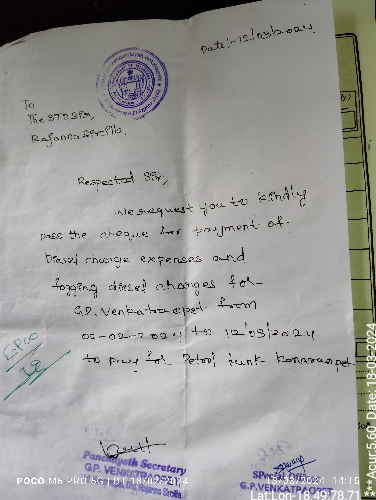 Date:- 12/03/2024
To
The STO Sir,
Rajanna Sircilla.
Respected Sir,
We request you to kindly
pass the cheque for payment of
Diesel charge expenses and
fogging diesel charges for
G.P. Venkatraopet from
02-02-2024 to 12/03/2024
to pay for Petrol bunk Konaraopet.
Panchayath Secretary
G.P. VENKATRAOPET
Rajanna Sircilla
G.P.VENKATRAOPET
POCO M6 PRO 5G | DT 18/02/2024
18/03/2024 14:15
Lat:Lon-18.49.78,71
***Acur,5.60: Date, 18-03-2024